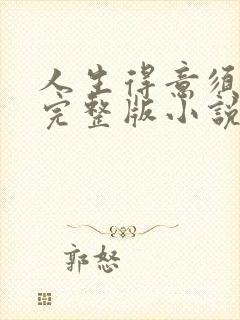 人生得意须
完整版小說
郭怒